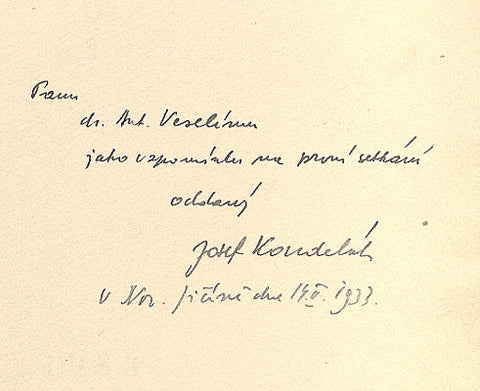 Panu
dr. Ant. Veselému
jako vzpomínku na první setkání
oddaný
Josef Kondelák
v Nov. Jičíně dne 14.II. 1933.